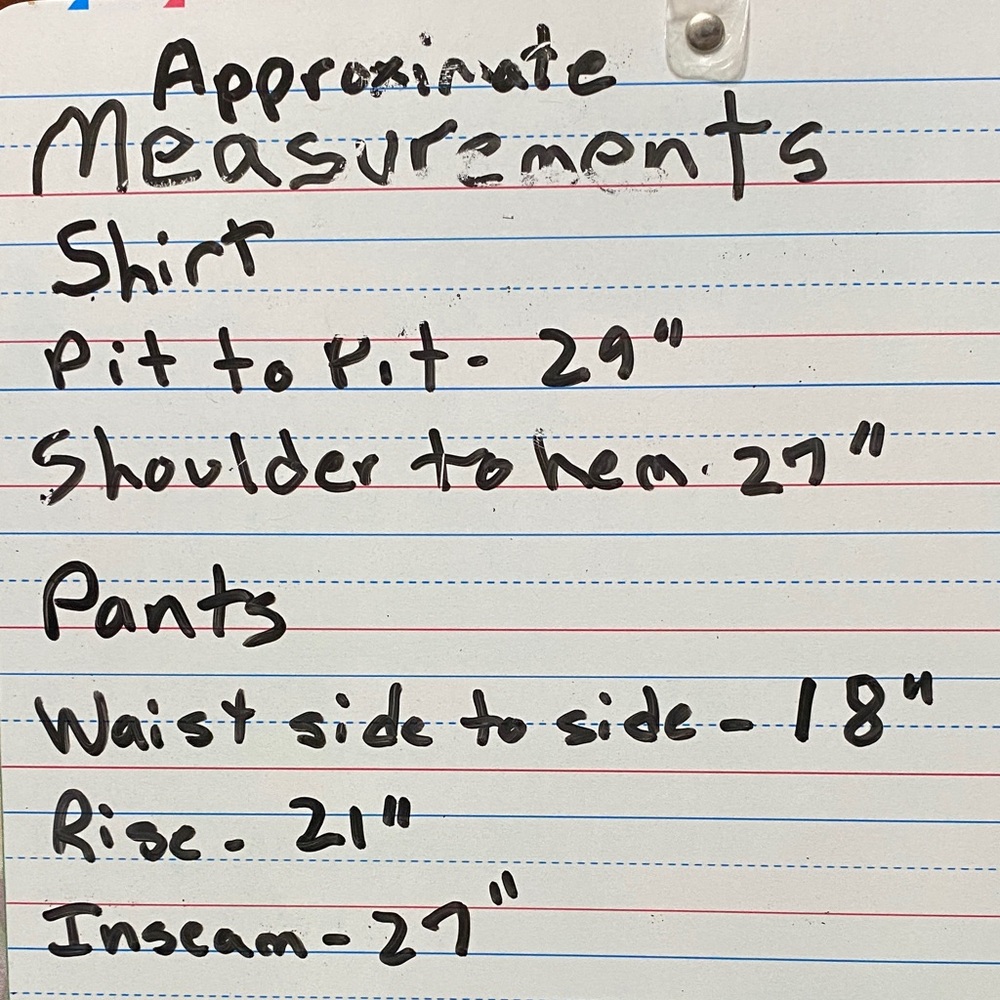 Approximate
Measurements
Shirt
Pit to Pit - 29"
Shoulder to hem - 27"
Pants
Waist side to side - 18"
Rise - 21"
Inseam - 27"